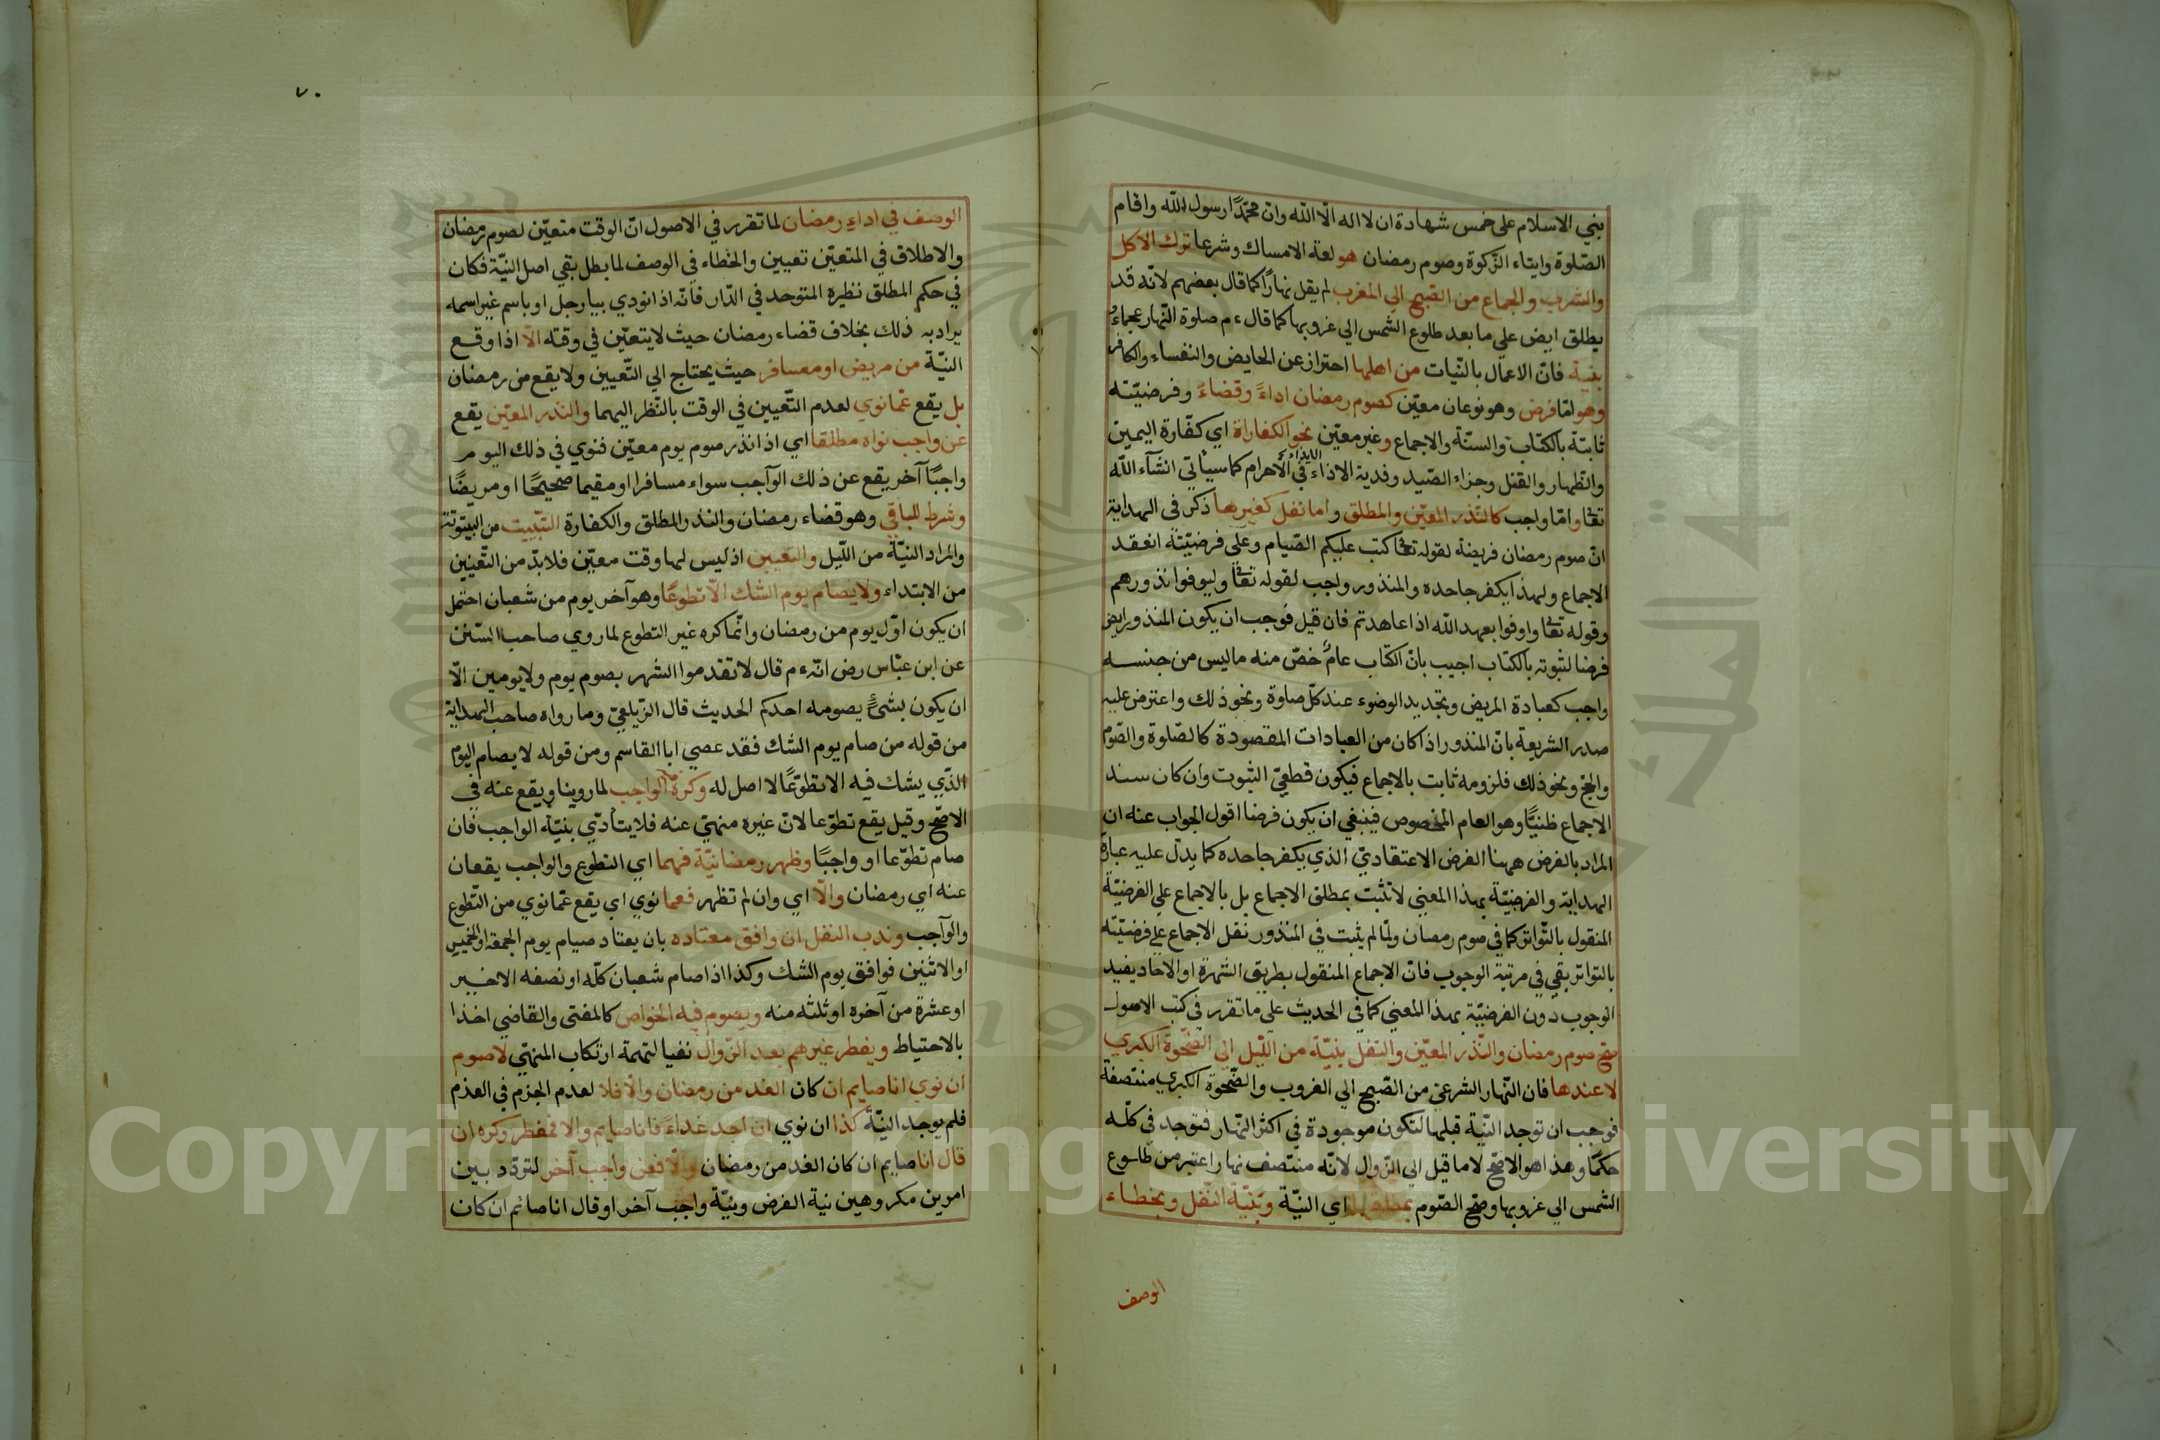 بني الاسلام على خمس شهادة ان لا اله الّا الله وانّ محمّدًا رسول الله واقام
الصّلوة وايتاء الزّكوة وصوم رمضان هو لغة الامساك وشرعا ترك الاكل
والشرب والجماع من الصّبح الي المغرب لم يقل نهارًا كما قال بعضهم لانّه قد
يطلق ايض علي ما بعد طلوع الشمس الي غروبها كما قال ءم صلوة النّهار عجماء
بنية فانّ الاعمال بالنّيات من اهلها احتراز عن الحايض والنفساء والكافر
وهو امّا فرض وهو نوعان معيّن كصوم رمضان اداءً وقضاءً وفرضيّته
ثابتة بالكتّاب والسنّة والاجماع وغير معيّن نحو الكفاراة اي كفّارة اليمين
والظهار والقتل وجزاء الصّيد وفدية الاذاء في الاحرام كما سيأتي انشآء الله
تعا وامّا واجب كالنّذر المعيّن والمطلق واما نفل كغيرها ذكر فى الهداية
انّ صوم رمضان فريضة لقوله تعا كتب عليكم الصّيام وعلى فرضيّته انعقد
الاجماع ولهذا يكفر جاحده والمنذور واجب لقوله تعا وليوفوا نذورهم
وقوله تعا واوفوا بعهد الله اذا عاهدتم فان قيل فوجب ان يكون المنذور ايض
فرضا لثبوته بالكتاب اجيب بانّ الكتّاب عامّ خصّ منه ما ليس من جنسه
واجب كعيادة المريض وتجديد الوضوء عند كلّ صلوة ونحو ذلك واعترض عليه
صدر الشريعة بانّ المنذور اذا كان من العبادات المقصودة كالصّلوة والصّوم
والحجّ ونحو ذلك فلزومه ثابت بالاجماع فيكون قطعيّ الثبوت وان كان سند
الاجماع ظنيًّا وهو العام المخصوص فينبغي ان يكون فرضا اقول الجواب عنه ان
المراد بالفرض ههنا الفرض الاعتقاديّ الذي يكفر جاحده كما يدلّ عليه عبارة
الهداية والفرضيّة بهذا المعني لا تثبت بمطلق الاجماع بل بالاجماع علي الفرضيّة
المنقول بالتّواتر كما في صوم رمضان ولمّا لم يثبت في المنذور نقل الاجماع علي فرضيّته
بالتواتر بقي في مرتبة الوجوب فانّ الاجماع المنقول بطريق الشهرة او الآحاد يفيد
الوجوب دون الفرضيّة بهذا المعني كما في الحديث على ما تقرر في كتب الاصول
صحّ صوم رمضان والنّذر المعيّن والنفل بنيّة من اللّيل الي الضّحوة الكبري
لا عندها فان النّهار الشرعيّ من الصّبح الي الغروب والضّحوة الكبري منتصفة
فوجب ان توجد النيّة قبلها لتكون موجودة في اكثر النّهار فتوجد في كلّه
حكمًا وهذا هو الاصّح لا ما قيل الي الزّوال لانّه منتصف نهار اعتبر من طلوع
الشمس الي غروبها وصحّ الصّوم بمطلق اي النيّة وبنيّة النّفل وبخطاء
الوصف
٧٠
الوصف في اداء رمضان لما تقرر في الاصول انّ الوقت متعيّن لصوم رمضان
والاطلاق في المتعيّن تعيين والخطاء في الوصف لما بطل بقي اصل النيّة فكان
في حكم المطلق نظيره المتوحد في الدّار فانّه اذا نودي بيا رجل او باسم غير اسمه
يراد به ذلك بخلاف قضاء رمضان حيث لا يتعيّن في وقته الّا اذا وقع
النيّة من مريض او مسافر حيث يحتاج الي التّعيين ولا يقع من رمضان
بل يقع عمّا نوي لعدم التّعيين في الوقت بالنّظر اليهما والنّذر المعيّن يقع
عن واجب نواه مطلقا اي اذا نذر صوم يوم معيّن فنوي في ذلك اليوم
واجبًا آخر يقع عن ذلك الوآجب سواء مسافرا او مقيما صحيحًا او مريضًا
وشرط للباقي وهو قضاء رمضان والنذر المطلق والكفارة التّبييت من البيتوتة
والمراد النيّة من اللّيل والتعيين اذ ليس لها وقت معيّن فلا بدّ من التّعيين
من الابتداء ولا يصام يوم الشك الّا تطوعًا وهو آخر يوم من شعبان احتمل
ان يكون اوّل يوم من رمضان وانّما كره غير التطوع لما روي صاحب السّنن
عن ابن عبّاس رض انّه ءم قال لا تقدموا الشهر بصوم يوم ولا يومين الّا
ان يكون بشئ يصومه احدكم الحديث قال الزّيلعيّ وما رواه صاحب الهداية
من قوله من صام يوم الشك فقد عصي ابا القاسم ومن قوله لا يصام اليوم
الذّي يشك فيه الا تطوّعًا لا اصل له وكره الواجب لما روينا ويقع عنه في
الاصّح وقيل يقع تطوّعا لانّ غيره منهيّ عنه فلا يتأدّي بنيّة الواجب فان
صام تطوّعا او واجبًا وظهر رمضانيّة فهما اي التطوع والواجب يقعان
عنه اي رمضان والّا اي وان لم تظهر فعما نوي اي يقع عمّا نوي من التّطوع
والوآجب وندب النفل ان وافق معتاده بان يعتاد صيام يوم الجمعة او الخميس
او الاثنين فوافق يوم الشك وكذا اذا صام شعبان كلّه او نصفه الاخير
او عشرة من آخره او ثلثه منه ويصوم فيه الخواص كالمفتى والقاضي اخذا
بالاحتياط ويفطر غيرهم بعد الزّوال نفيا لتهمة ارتكاب المنهيّ لا صوم
ان نوي انا صايم ان كان الغد من رمضان والّا فلا لعدم الجزم في العزم
فلم يوجد النيّة كذا ان نوي ان اجد غداءً فانا صايم والا فمفطر وكره ان
قال انا صايم ان كان الغد من رمضان والّا فعن واجب آخر لتردّد بين
امرين مكروهين نية الفرض ونيّة واجب آخر او قال انا صائم ان كان